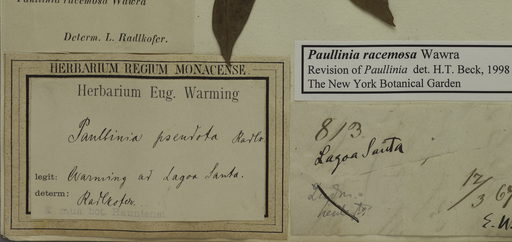 Paullinia racemosa Wawra
Determ. L. Radlkofer.
HERBARIUM REGIUM MONACENSE.
Herbarium Eug. Warming
Paullinia pseudota Radlk.
legit: Warming ad Lagoa Santa.
determ: Radlkofer.
Paullinia racemosa Wawra
Revision of Paullinia det. H.T. Beck, 1998
The New York Botanical Garden
8/3
Lagoa Santa
12/3 64
E.W.